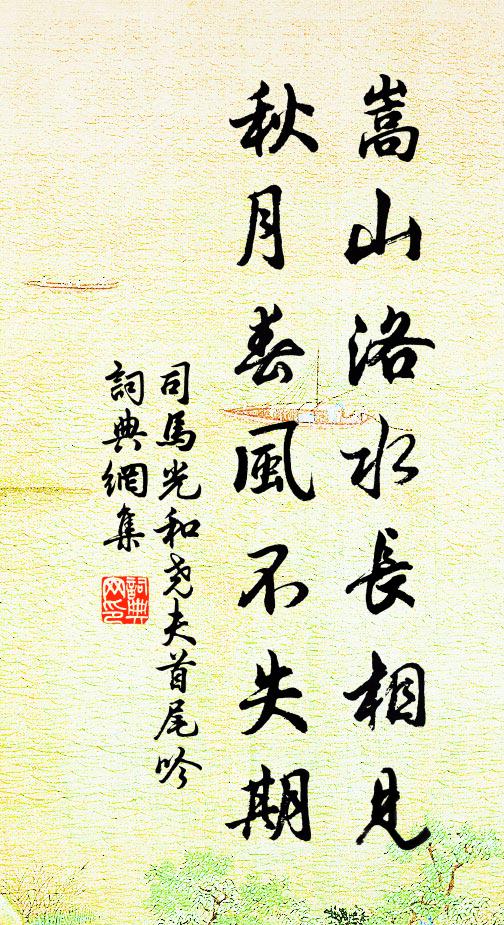 嵩山洛水長相見
秋月春風不失期
司馬光和尧夫首尾吟
詞典網集
詞典网印